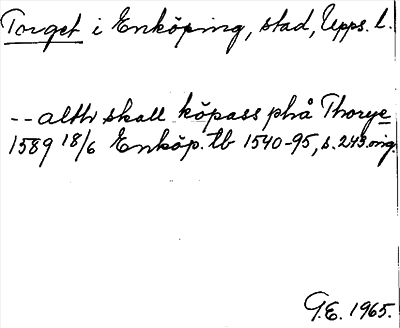 Torget i Enköping, stad, Upps. l.
-- alth skall köpass phå Thorye
1589 18/6 Enköp. tb 1540-95, s. 243 orig.
G.E. 1965.